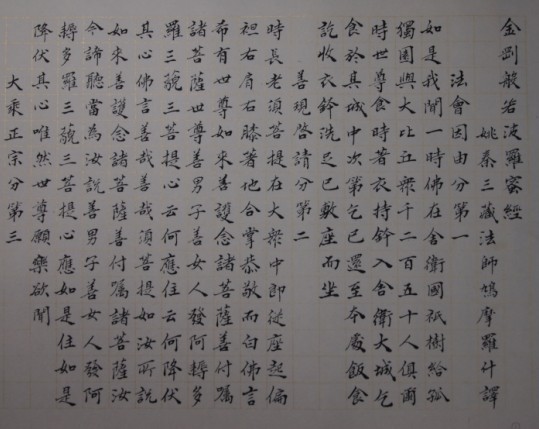 金剛般若波羅蜜經
姚秦三藏法師鳩摩羅什譯
法會因由分第一
如是我聞一時佛在舍衛國祇樹給孤
獨園與大比丘衆千二百五十人俱爾
時世尊食時著衣持鉢入舍衛大城乞
食於其城中次第乞已還至本處飯食
訖收衣鉢洗足已敷座而坐
善現啓請分第二
時長老須菩提在大衆中即從座起偏
袒右肩右膝著地合掌恭敬而白佛言
希有世尊如來善護念諸菩薩善付囑
諸菩薩世尊善男子善女人發阿耨多
羅三藐三菩提心云何應住云何降伏
其心佛言善哉善哉須菩提如汝所說
如來善護念諸菩薩善付囑諸菩薩汝
今諦聽當為汝說善男子善女人發阿
耨多羅三藐三菩提心應如是住如是
降伏其心唯然世尊願樂欲聞
大乘正宗分第三